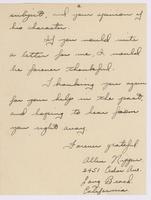 subject, and your opinion of
his character.
If you would write
a letter for me, I would
be forever thankful.
Thanking you again
for your help in the past,
and hoping to hear from
you right away.
Forever grateful
Allen
2451 Ave.
Long Beach
California